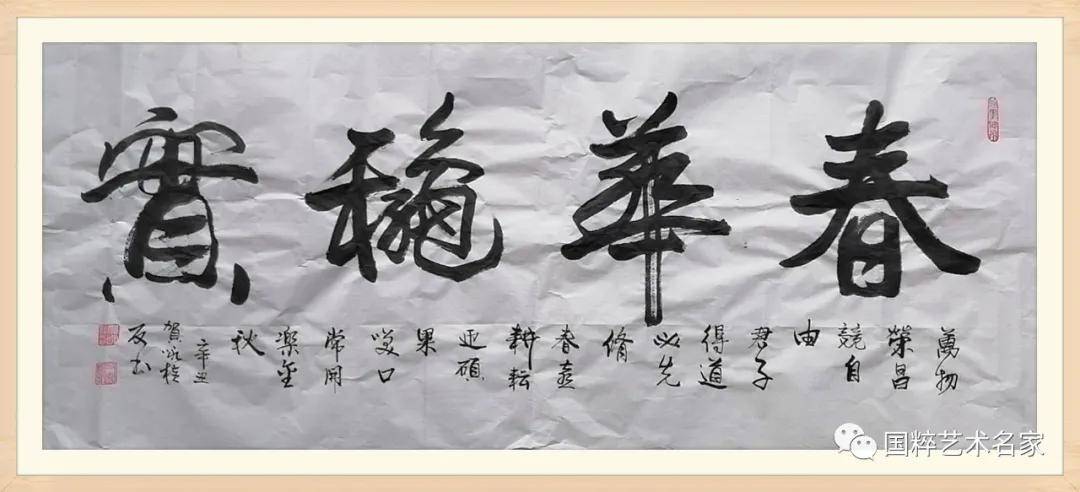 春華穐實
萬物
榮昌
競自
由
君子
得道
必先
脩
春喜
耕耘
迎碩
果
笑口
常開
樂金
秋
辛丑
賀
友书
国粹艺术名家